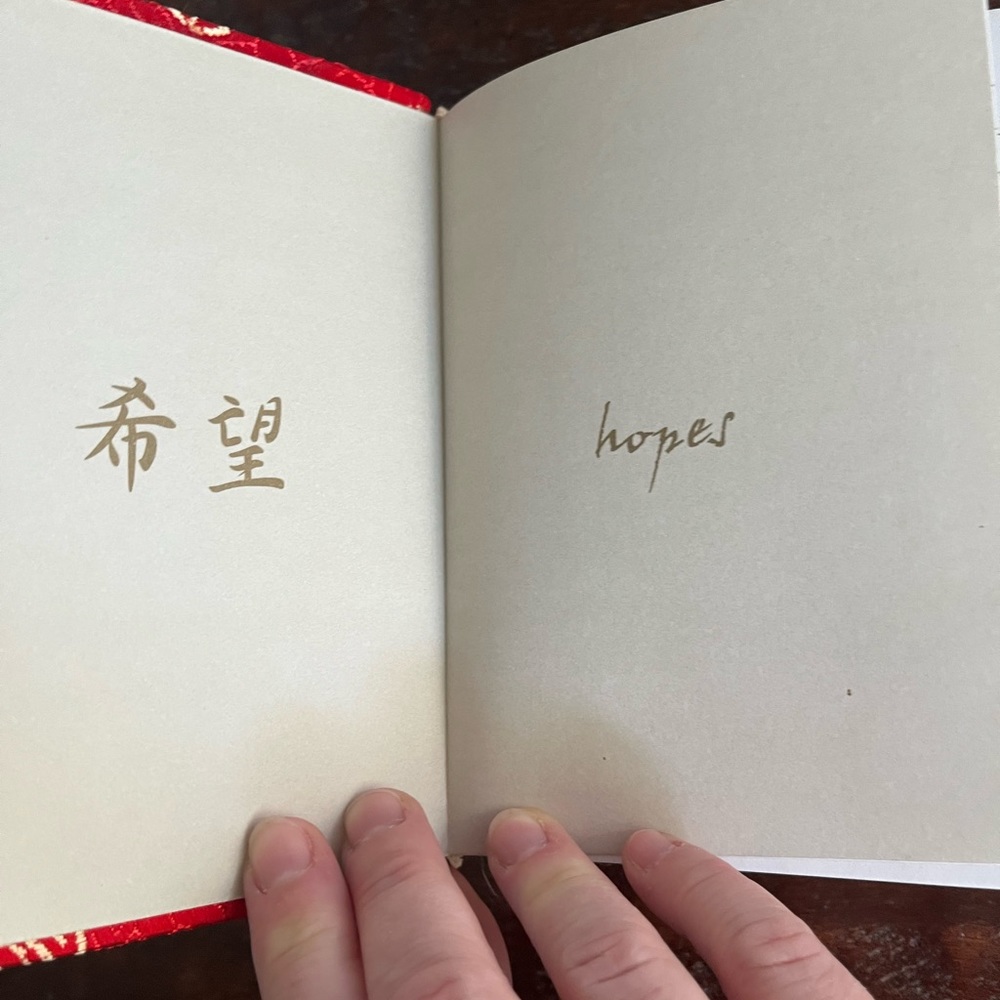 希望
hopes